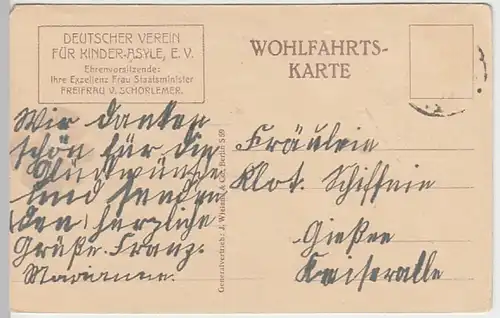 DEUTSCHER VEREIN
FÜR KINDER-ASYLE, E. V.
Ehrenvorsitzende:
Ihre Exzellenz Frau Staatsminister
FREIFRAU V. SCHORLEMER.
WOHLFAHRTS-
KARTE
Wir danken
schön für die
Glückwünsche
und senden
(den) herzliche
Grüße. Franz.
Marianne.
Generalvertrieb: J. Wiesand & Co. Berlin S 59
Fräulein
Klot. Schiffnie
Gießen
Kaiserallee